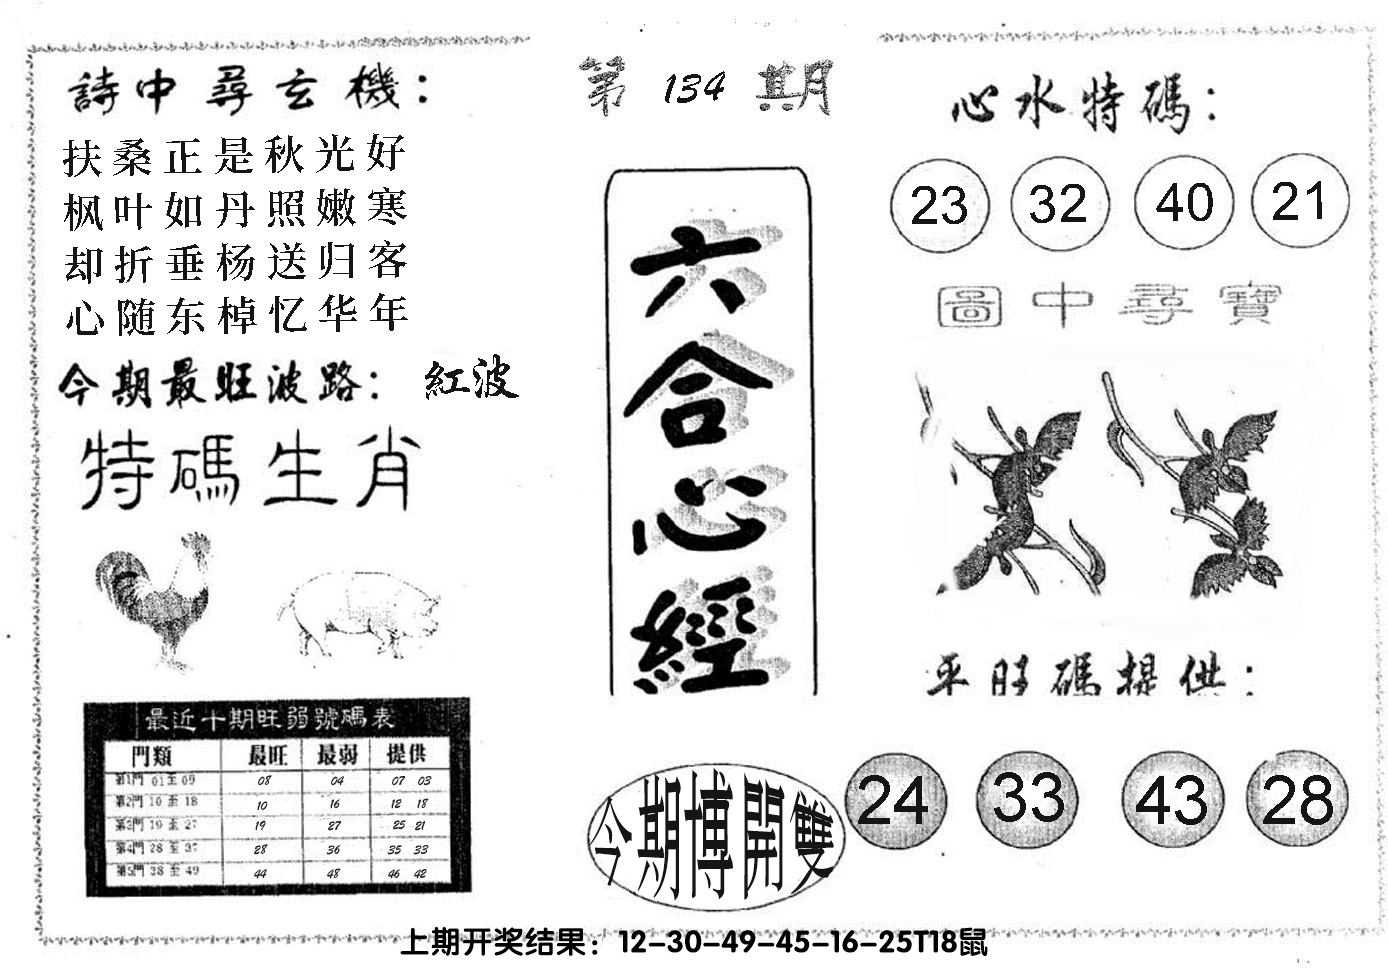 詩中尋玄機：
扶桑正是秋光好
枫叶如丹照嫩寒
却折垂杨送归客
心随东棹忆华年
今期最旺波路：紅波
特碼生肖
最近十期旺弱號碼表
門類 最旺 最弱 提供
第1門 01至09 08 04 07 03
第2門 10至18 10 16 12 18
第3門 19至27 19 27 25 21
第4門 28至37 28 36 35 33
第5門 38至49 44 48 46 42
第134期
六合心經
今期博開雙
心水特碼：
23 32 40 21
圖中尋寶
平旺碼提供：
24 33 43 28
上期开奖结果：12-30-49-45-16-25T18鼠